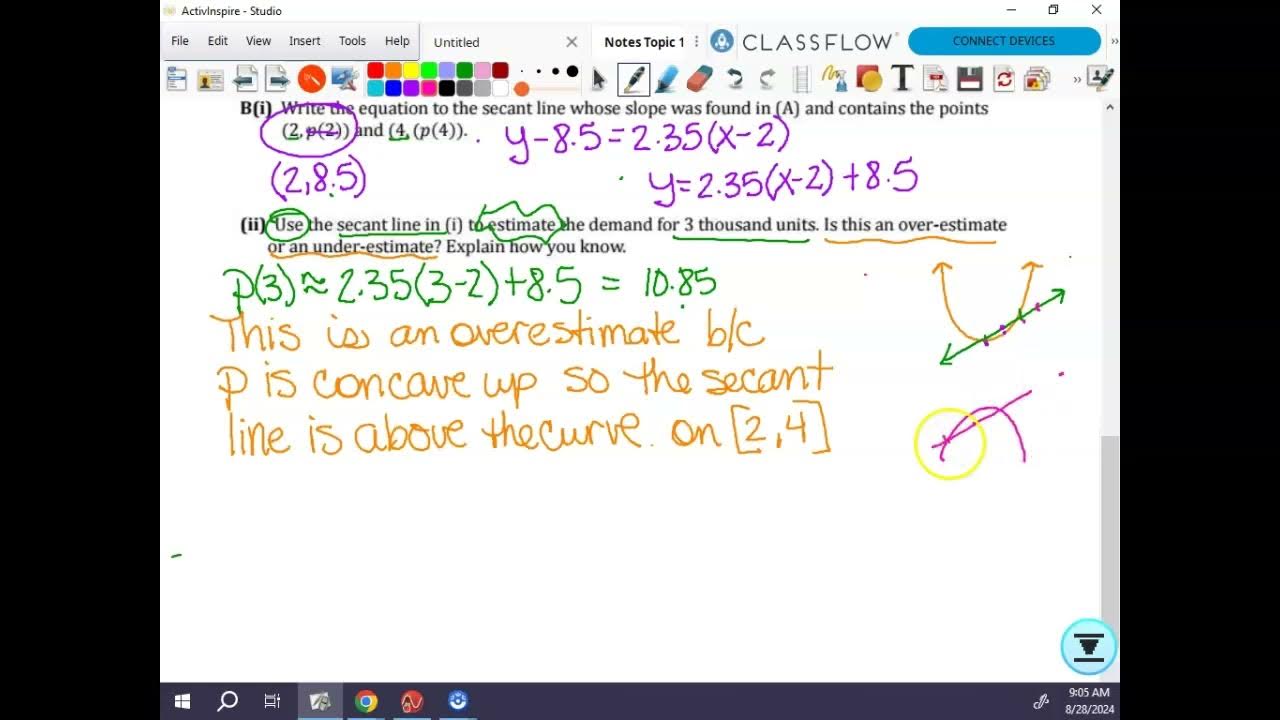 ActivInspire - Studio
File Edit View Insert Tools Help Untitled Notes Topic 1 CLASSFLOW CONNECT DEVICES
B(i) Write the equation to the secant line whose slope was found in (A) and contains the points
(2, p(2)) and (4, (p(4)). y-8.5=2.35(x-2)
(2,8.5) y=2.35(x-2)+8.5
(ii) Use the secant line in (i) to estimate the demand for 3 thousand units. Is this an over-estimate
or an under-estimate? Explain how you know.
p(3)≈2.35(3-2)+8.5 = 10.85
This is an overestimate b/c
p is concave up so the secant
line is above the curve. on [2,4]
9:05 AM
8/28/2024